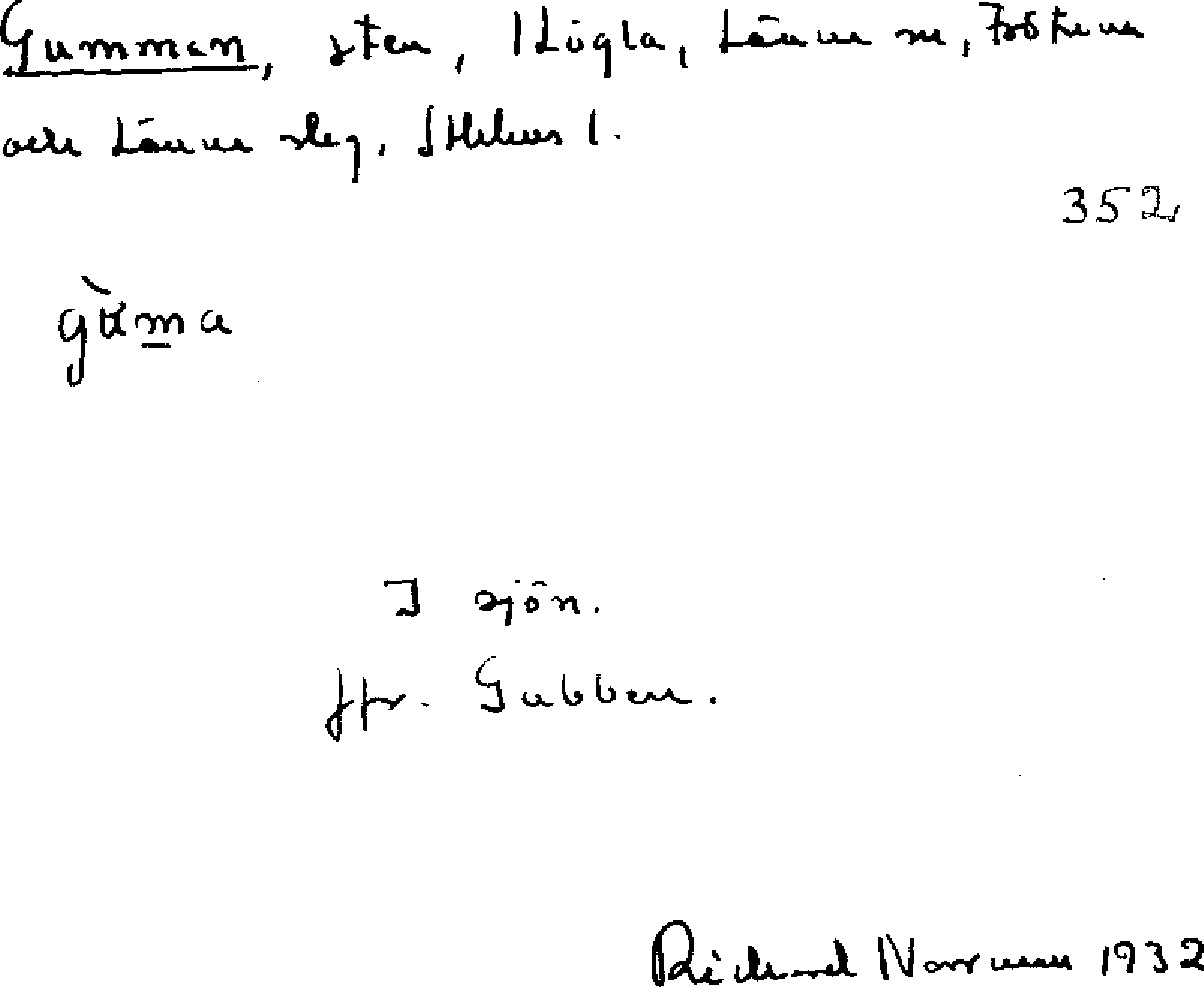 Gumman, sten, Högla, Länna sn, Frötuna
och Länna slg, Sthlms l.
352
gùma
I sjön.
Jfr. Gubben.
Richard Norrman 1932